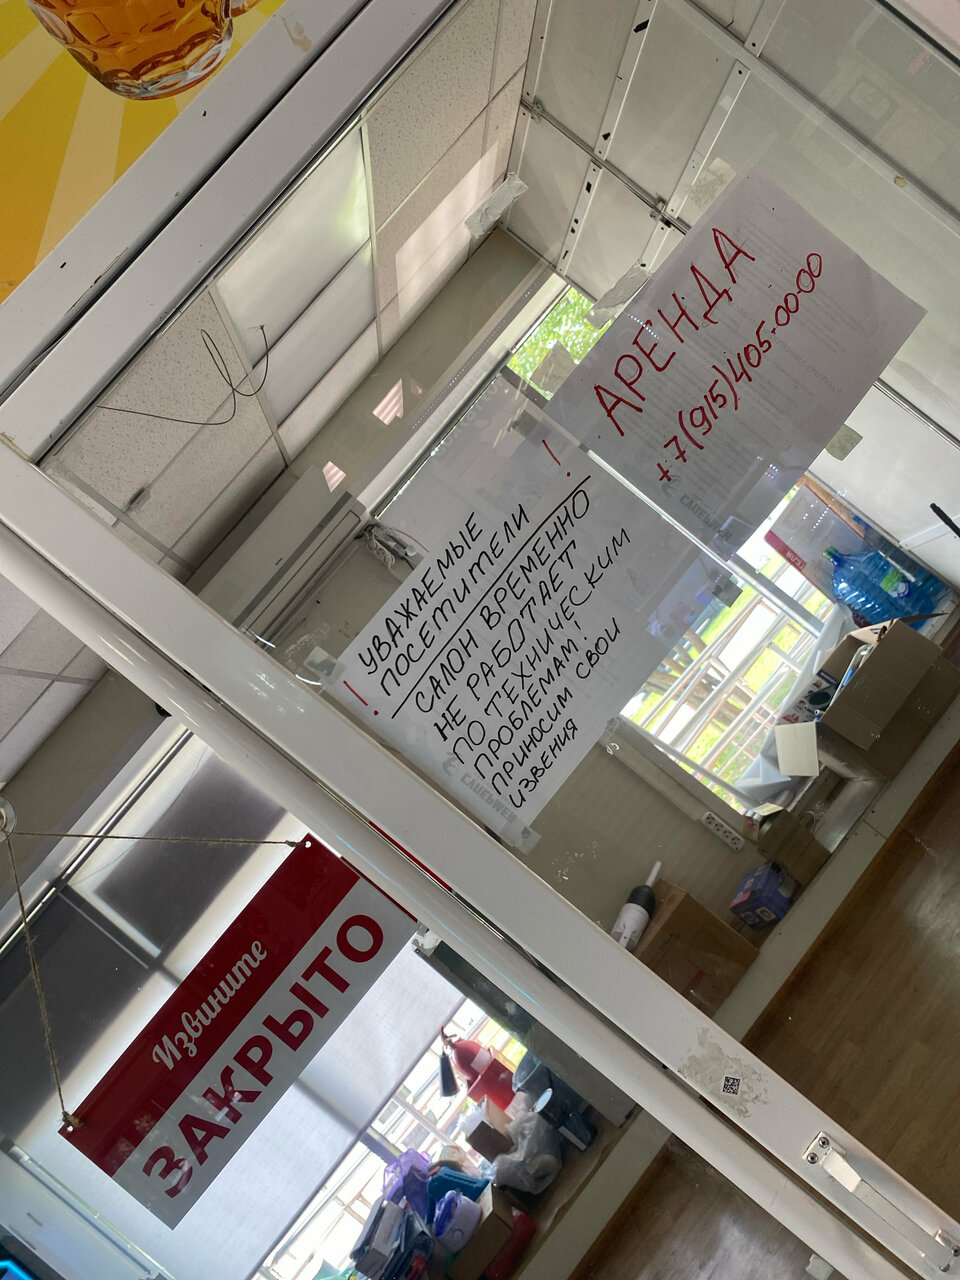 АРЕНДА
+7(915)405-00-00
! УВАЖАЕМЫЕ
ПОСЕТИТЕЛИ !
САЛОН ВРЕМЕННО
НЕ РАБОТАЕТ
ПО ТЕХНИЧЕСКИМ
ПРОБЛЕМАМ!
ПРИНОСИМ СВОИ
ИЗВЕНИЯ
Извините
ЗАКРЫТО